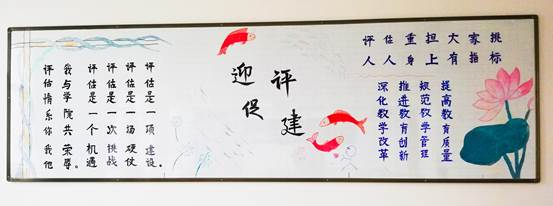 评估是一项建设。
评估是一场硬仗
评估是一次挑战
评估是一个机遇
我与学院共荣辱。
评估情系你我他
迎评促建
评估重担大家挑
人人身上有指标
提高教育质量
规范教学管理
推进教育创新
深化教学改革